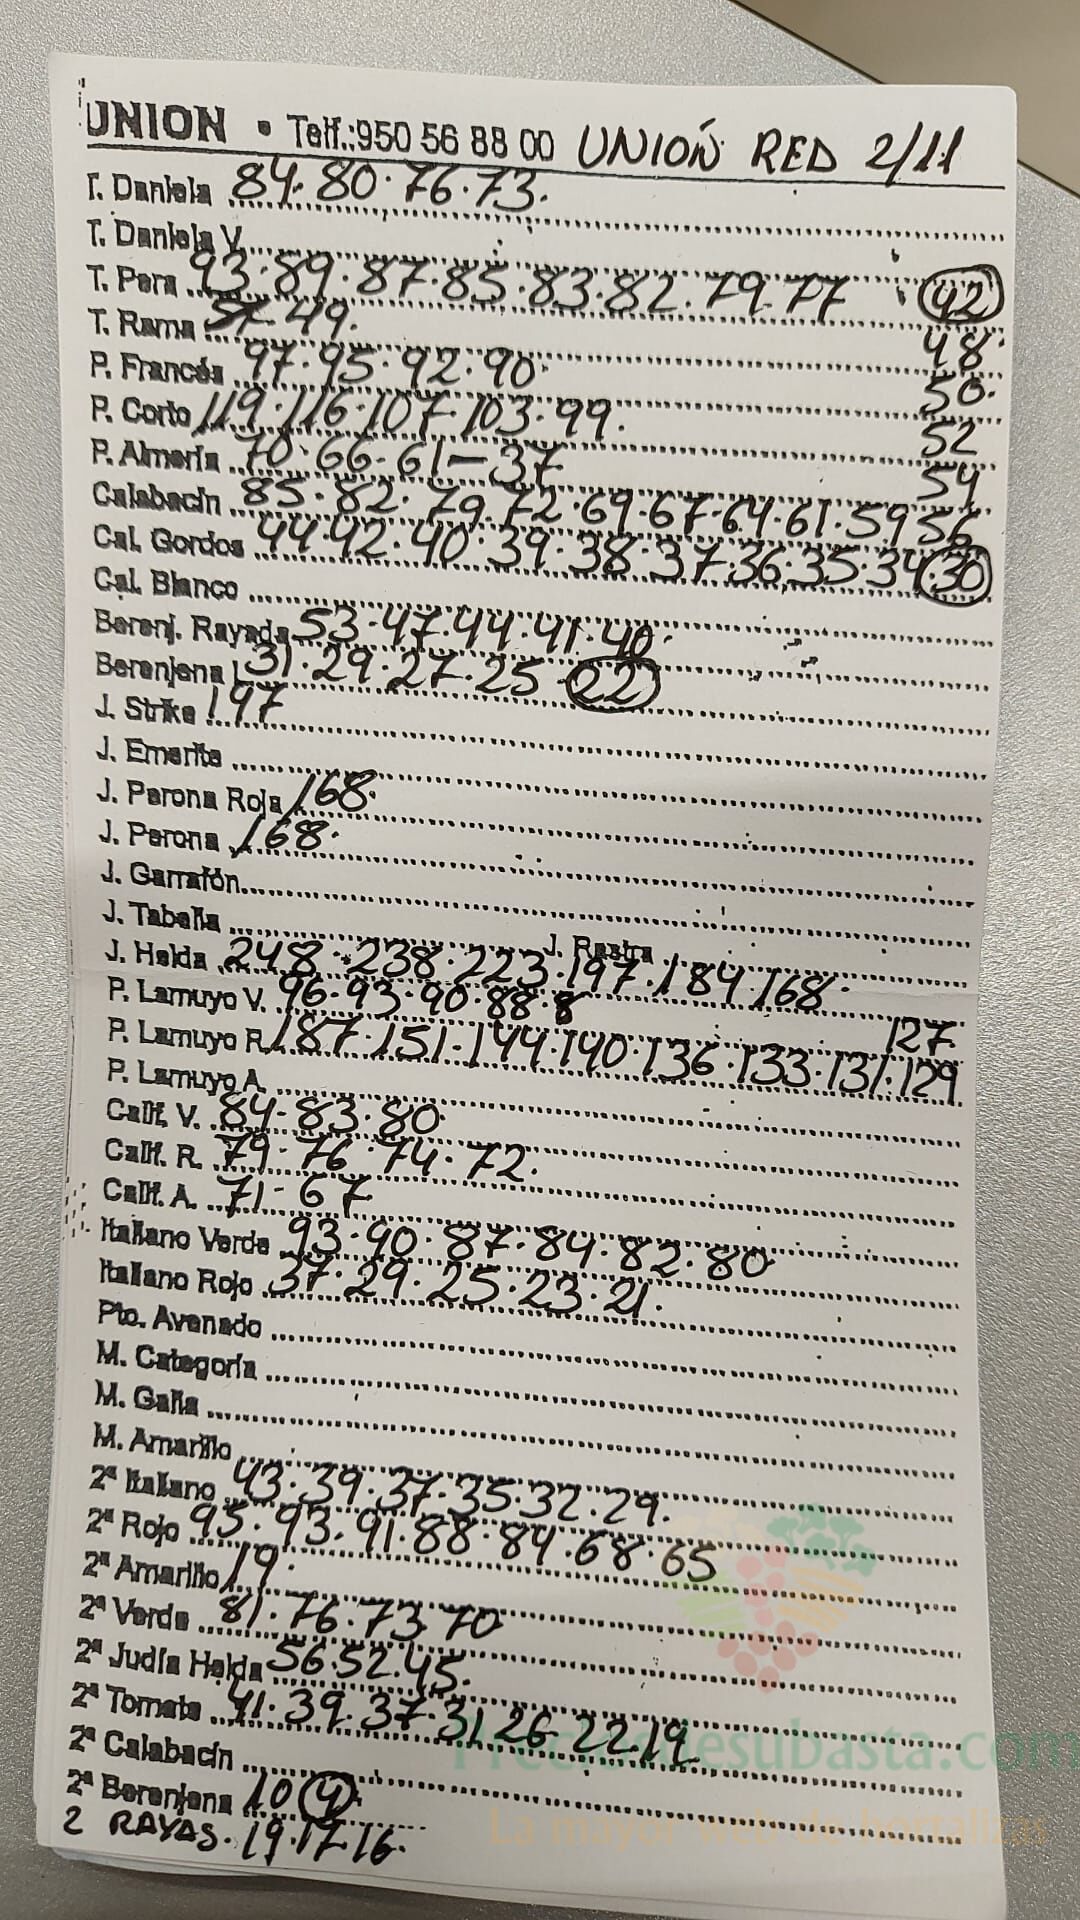 UNION • Telf.:950 56 88 00 UNIÓN RED 2/11
T. Daniela 84.80.76.73.
T. Daniela V.
T. Pera 93.89.87.85.83.82.79.77 42
T. Rama 49. 48
P. Francés 97.95.92.90 50.
P. Corto 119.116.107.103.99. 52
P. Almería 70.66-61-37 54
Calabacín 85.82.79.72.69.67.64.61.59 56
Cal. Gordos 44.42.40.39.38.37.36.35.34.30
Cal. Blanco
Berenj. Rayada 53.47.44.41.40.
Berenjena L 31.29.27.25 22
J. Strike 197
J. Emerite
J. Perona Roja 168.
J. Perona 168.
J. Garrafón
J. Tabella J. Rastra
J. Helda 248.238.223.197.184.168.
P. Lamuyo V. 96.93.90.88.8 127.
P. Lamuyo R. 187.151-144.140.136.133.131.129
P. Lamuyo A.
Calif. V. 84-83.80
Calif. R. 79-76.74.72.
Calif. A. 71-67
Italiano Verde 93.90.87.84.82.80
Italiano Rojo 37.29.25.23.21.
Pto. Avenado
M. Categoría
M. Galia
M. Amarillo
2ª Italiano 43.39.37.35.32.29.
2ª Rojo 95.93.91.88.84.68.65
2ª Amarillo 19.
2ª Verde 81.76.73.70
2ª Judía Helda 56.52.45.
2ª Tomate 41.39.37.31.26.22.19
2ª Calabacín
2ª Berenjena 10 4
2 RAYAS. 19.17.16.
Preciosdesubasta.com
La mayor web de hortalizas